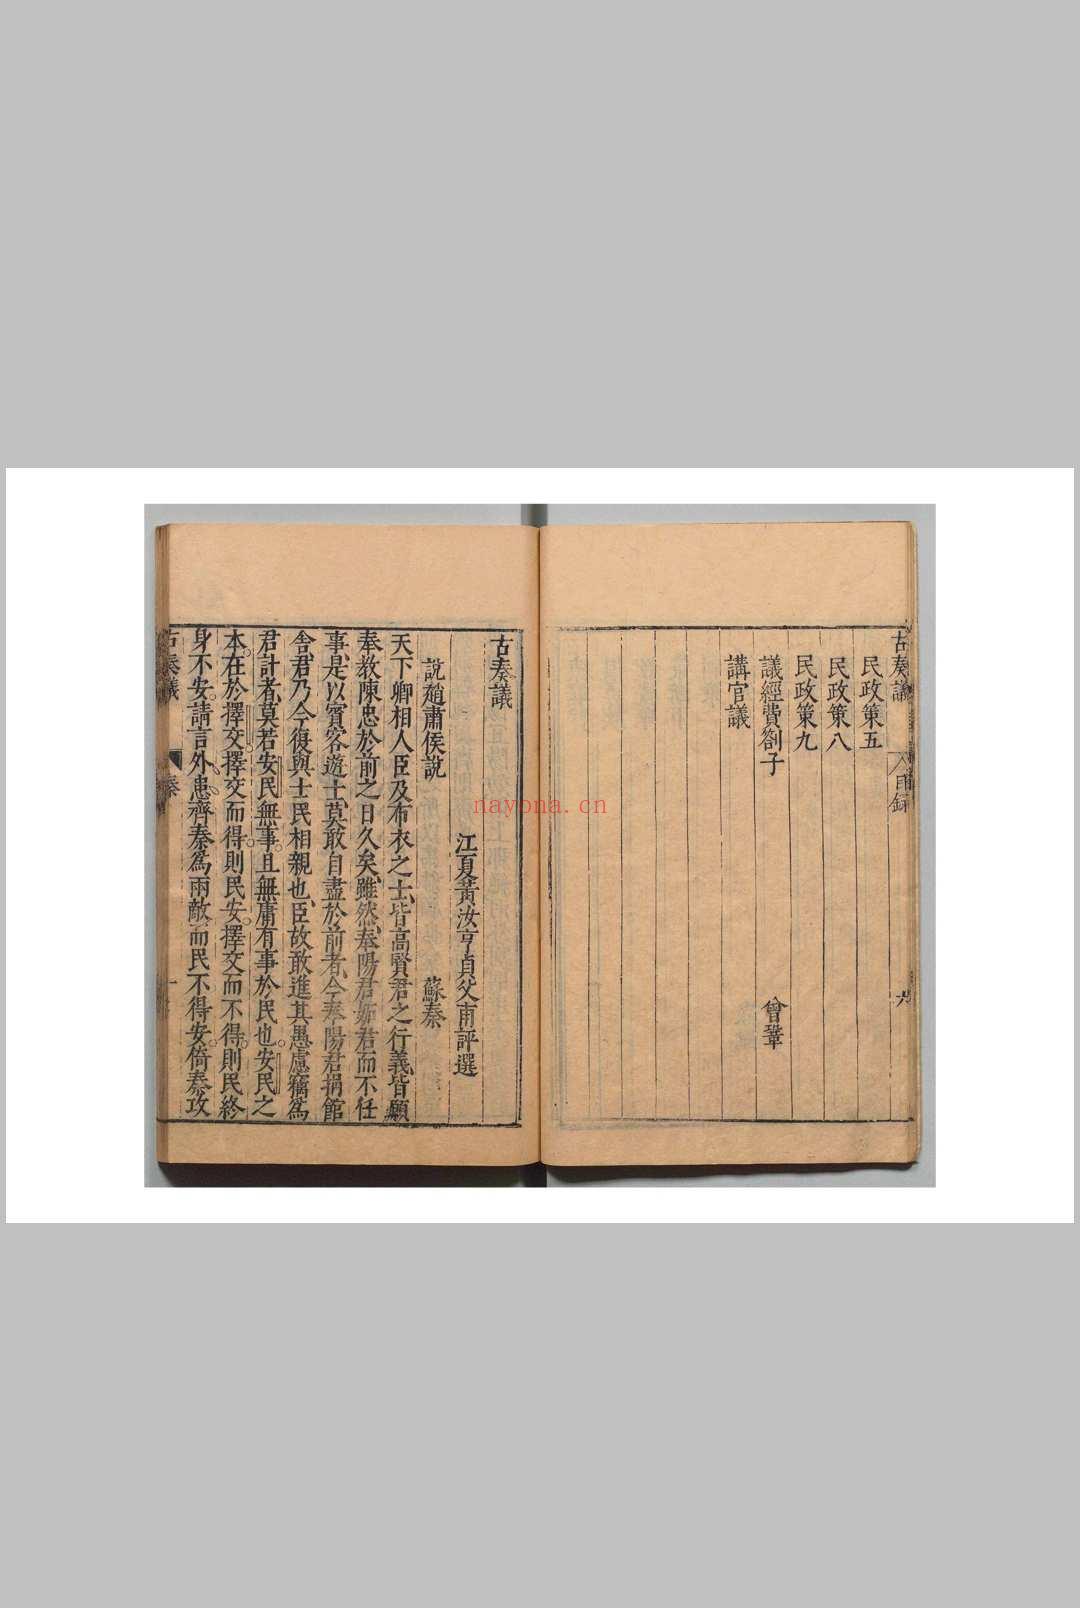 古奏議
目錄
民政策五
民政策八
民政策九
議經費劄子
曾鞏
講官議
古奏議
江夏黃汝亨貞父甫評選
說趙肅侯說
蘇秦
天下卿相人臣及布衣之士皆高賢君之行義皆願
奉教陳忠於前之日久矣雖然奉陽君妬君而不任
事是以賓客遊士莫敢自盡於前者今奉陽君捐館
舍君乃今復與士民相親也臣故敢進其愚慮竊為
君計者莫若安民無事且無庸有事於民也安民之
本在於擇交擇交而得則民安擇交而不得則民終
身不安請言外患齊秦為兩敵而民不得安倚秦攻
古奏議
秦
一
nayona.cn